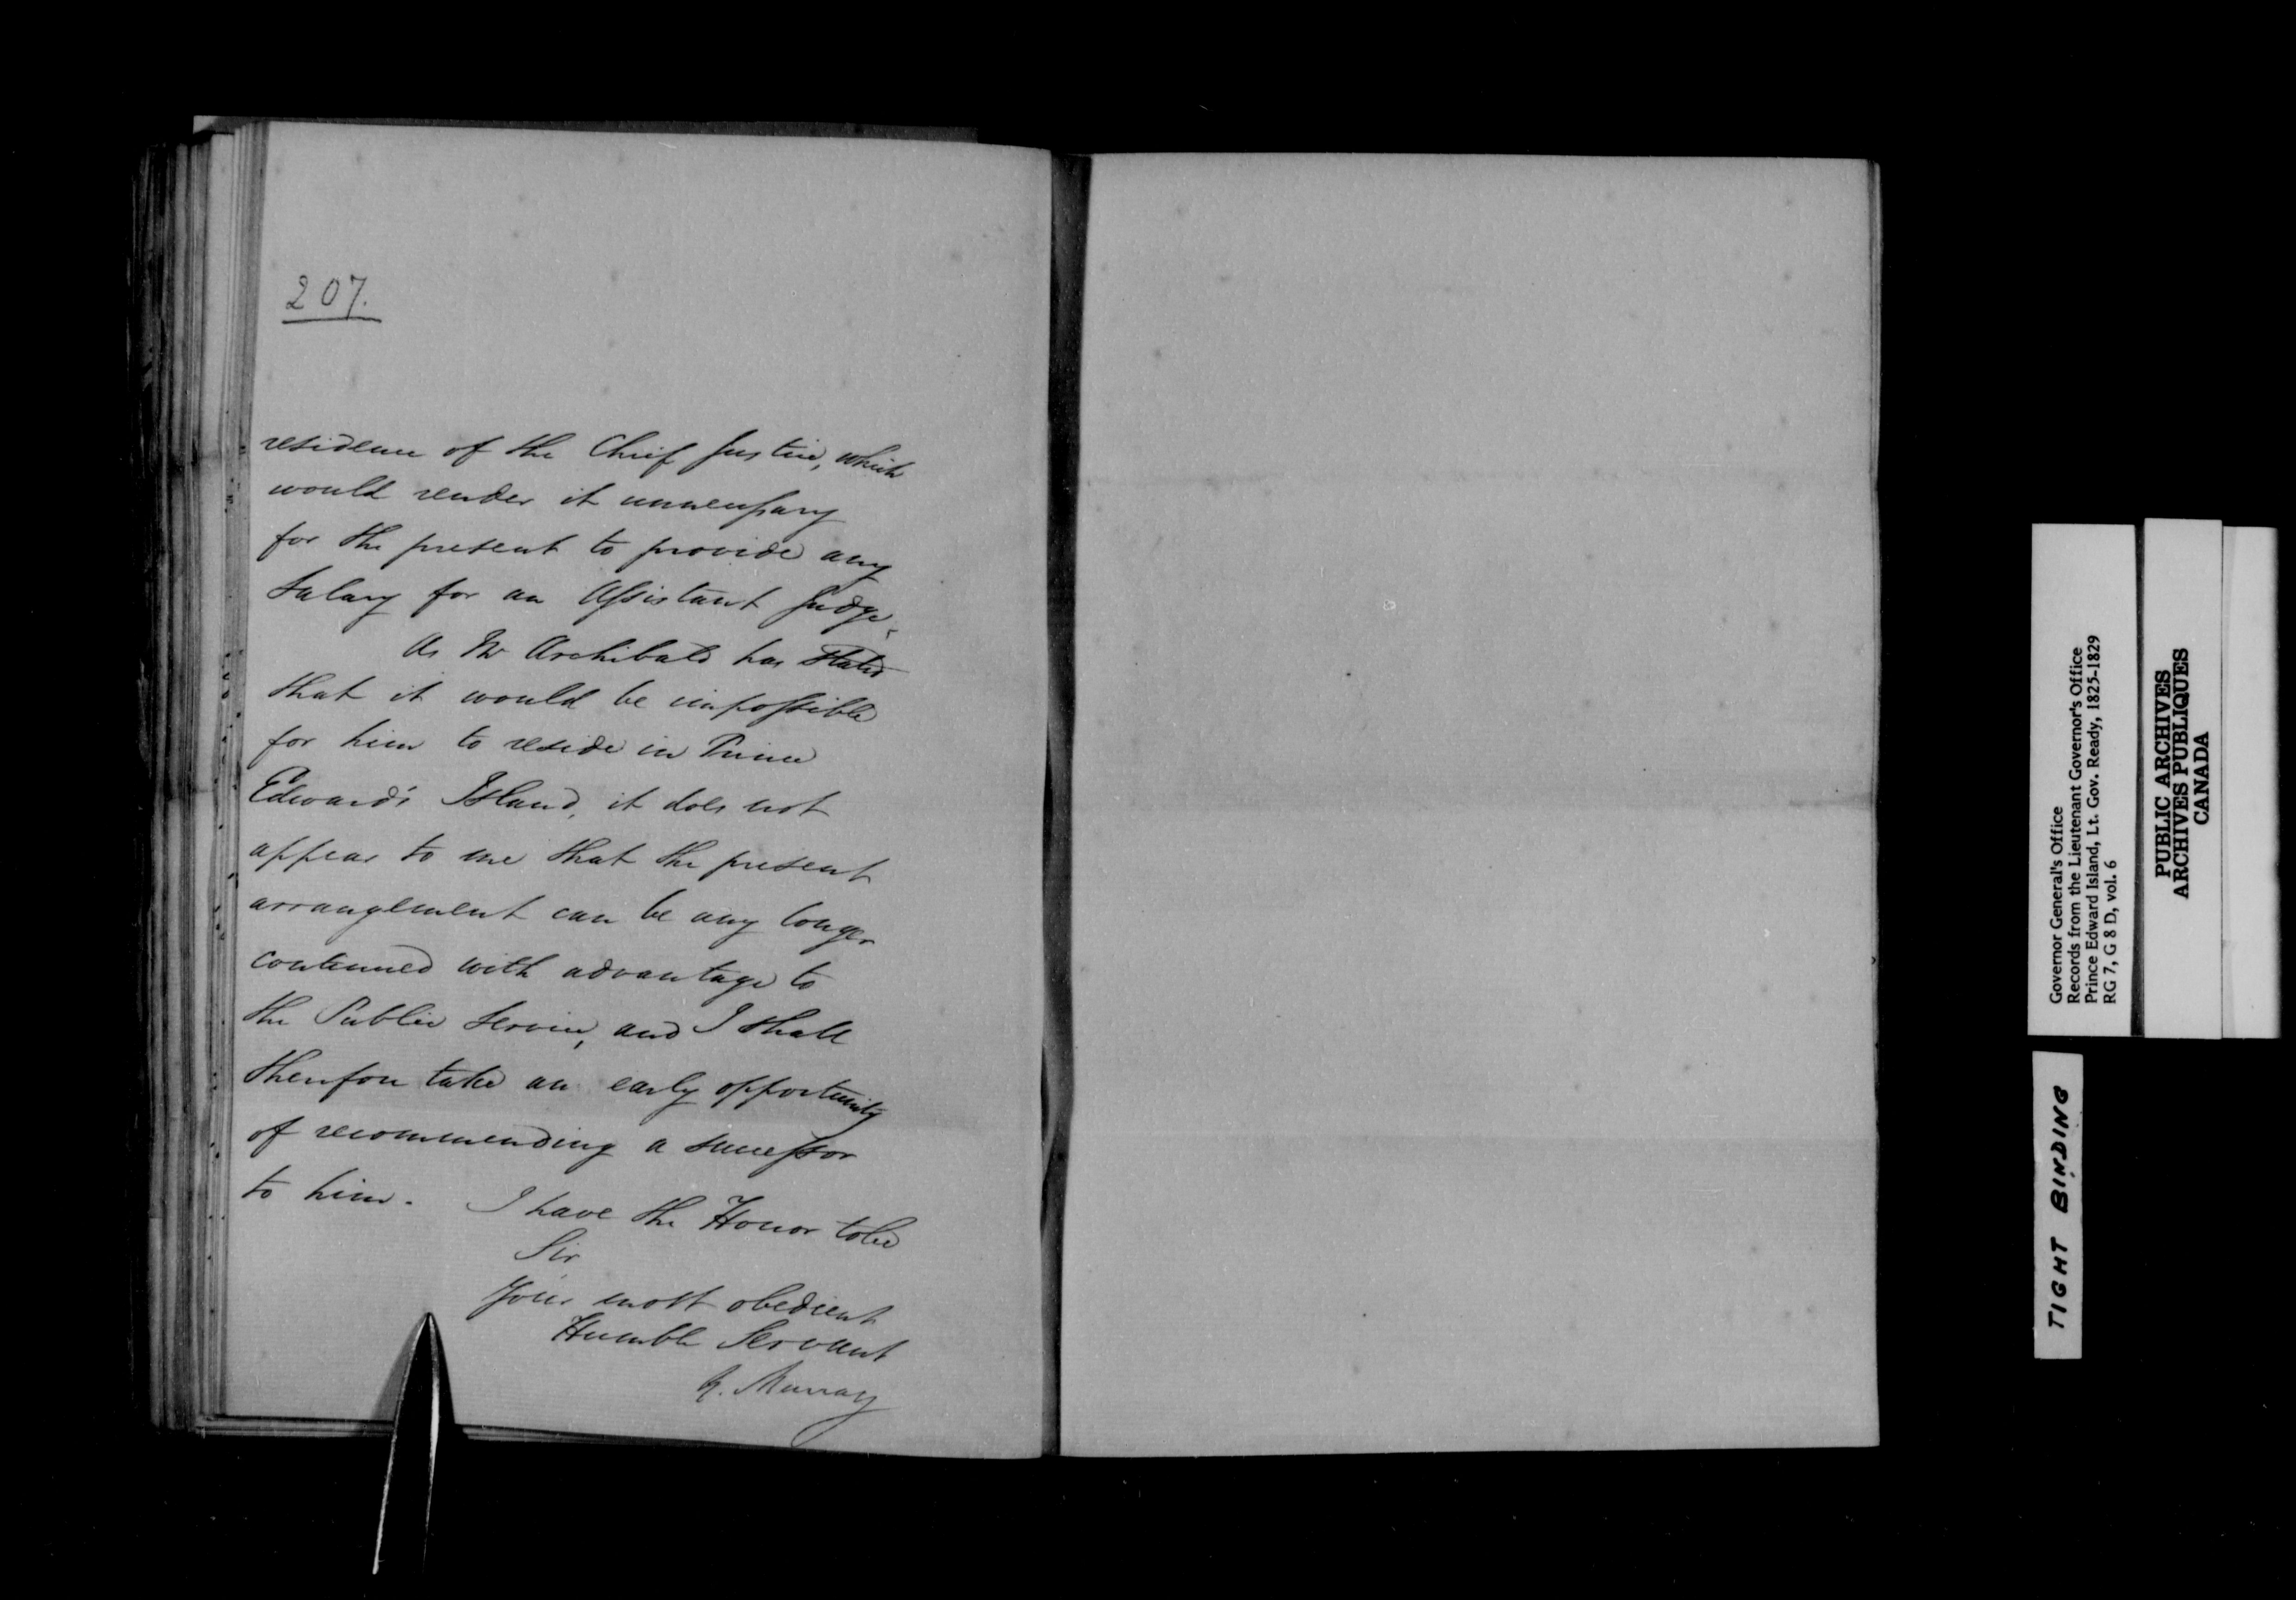 207.
residence of the Chief Justice, which
would render it unnecessary
for the present to provide any
Salary for an Assistant Judge.
As Mr Archibald has stated
that it would be impossible
for him to reside in Prince
Edward's Island, it does not
appear to me that the present
arrangement can be any longer
continued with advantage to
the Public Service, and I shall
therefore take an early opportunity
of recommending a successor
to him.
I have the Honor to be
Sir
Your most obedient
Humble Servant
G. Murray
Governor General's Office
Records from the Lieutenant Governor's Office
Prince Edward Island, Lt. Gov. Ready, 1825-1829
RG 7, G 8 D, vol. 6
PUBLIC ARCHIVES
ARCHIVES PUBLIQUES
CANADA
TIGHT BINDING